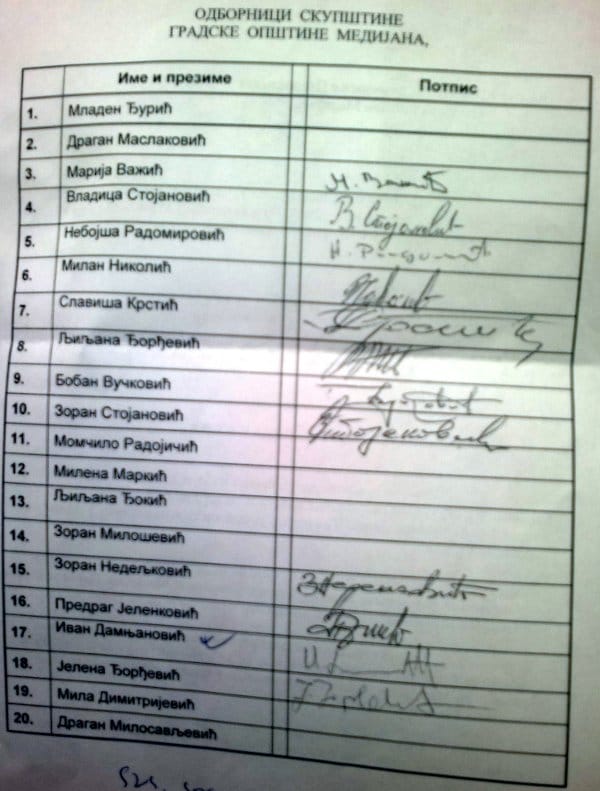 ОДБОРНИЦИ СКУПШТИНЕ
ГРАДСКЕ ОПШТИНЕ МЕДИЈАНА,
Име и презиме Потпис
1. Младен Ђурић
2. Драган Маслаковић
3. Марија Важић
4. Владица Стојановић
5. Небојша Радомировић
6. Милан Николић
7. Славиша Крстић
8. Љиљана Ђорђевић
9. Бобан Вучковић
10. Зоран Стојановић
11. Момчило Радојичић
12. Милена Маркић
13. Љиљана Ђокић
14. Зоран Милошевић
15. Зоран Недељковић
16. Предраг Јеленковић
17. Иван Дамњановић
18. Јелена Ђорђевић
19. Мила Димитријевић
20. Драган Милосављевић